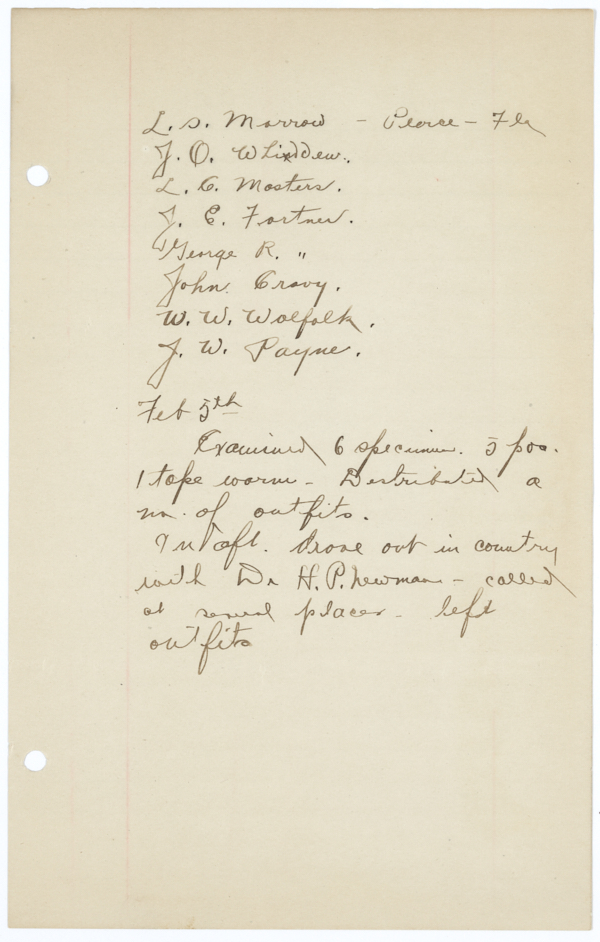 L. S. Morrow - Pearce - Fla
J. O. Whidden.
L. C. Masters.
J. E. Fortner.
George R. "
John Cravy.
W. W. Wolfolk.
J. W. Payne.
Feb 5th
Examined 6 specimens. 5 pos.
1 tape worm - Distributed a
no. of outfits.
In aft. drove out in country
with Dr H. P. Newman - called
at several places - left
outfits